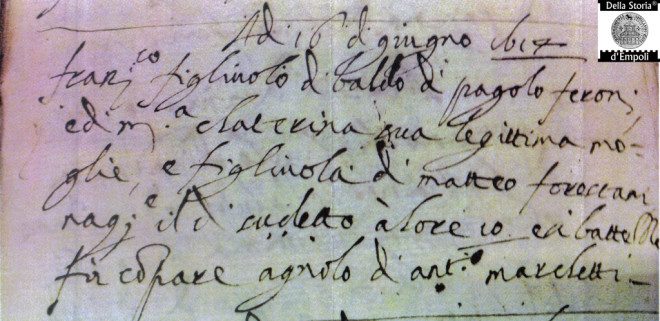 Della Storia®
d'Empoli
Adi 16 di giugno 1614
franj.co figliuolo di baldo di pagolo feroni
e di m.a Chaterina sua legittima mo-
glie, e figliuola di matteo
nacq.e il dì sudetto à hore 10 e si battezzò
fu cōpare agnolo d'ant.o marchetti -